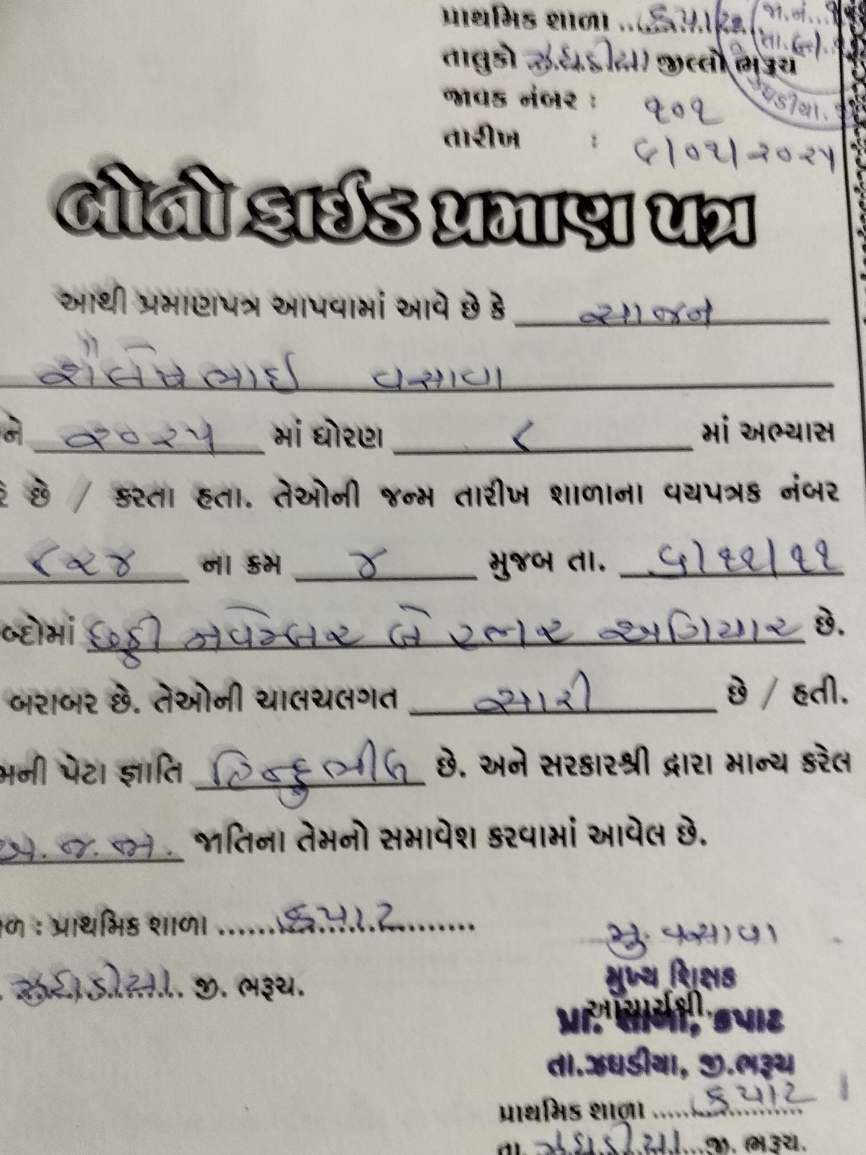 પ્રાથમિક શાળા .. કપાટ
તાલુકો ઝઘડીયા જીલ્લો ભરૂચ
જાવક નંબર : ૧૦૧
તારીખ : ૮/૦૧/૨૦૨૫
બોનોફાઈડ પ્રમાણ પત્ર
આથી પ્રમાણપત્ર આપવામાં આવે છે કે સાજન
શૈલેષભાઈ વસાવા
ને ૨૦૨૫ માં ધોરણ ૮ માં અભ્યાસ
રે છે / કરતા હતા. તેઓની જન્મ તારીખ શાળાના વયપત્રક નંબર
૮૨૪ ના ક્રમ ૪ મુજબ તા. ૬/૧૧/૧૧
બ્દોમાં છઠ્ઠી નવેમ્બર બે હજાર અગિયાર છે.
બરાબર છે. તેઓની ચાલચલગત સારી છે / હતી.
મની પેટા જ્ઞાતિ હિન્દુ ભીલ છે. અને સરકારશ્રી દ્વારા માન્ય કરેલ
અ. જ. જા. જાતિના તેમનો સમાવેશ કરવામાં આવેલ છે.
ળ : પ્રાથમિક શાળા ...... કપાટ ......
ઝઘડીયા. જી. ભરૂચ.
સુ. વસાવા
મુખ્ય શિક્ષક
આચાર્યશ્રી.
પ્રા. શાળા, કપાટ
તા.ઝઘડીયા, જી.ભરૂચ
પ્રાથમિક શાળા ..... કપાટ
તા. ઝઘડીયા... જી. ભરૂચ.